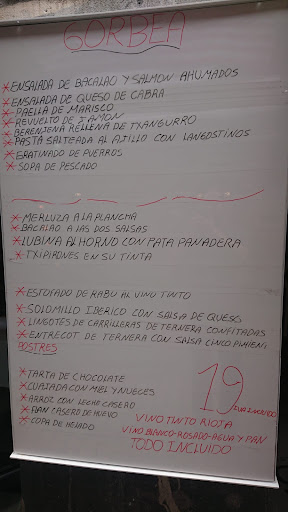 GORBEA
* ENSALADA DE BACALAO Y SALMON AHUMADOS
* ENSALADA DE QUESO DE CABRA
* PAELLA DE MARISCO
* REVUELTO DE JAMON
* BERENJENA RELLENA DE TXANGURRO
* PASTA SALTEADA AL AJILLO CON LANGOSTINOS
* GRATINADO DE PUERROS
* SOPA DE PESCADO
* MERLUZA A LA PLANCHA
* BACALAO A LAS DOS SALSAS
* LUBINA AL HORNO CON PATA PANADERA
* TXIPIRONES EN SU TINTA
* ESTOFADO DE RABU AL VINO TINTO
* SOLOMILLO IBERICO CON SALSA DE QUESO
* LINGOTES DE CARRILLERAS DE TERNERA CONFITADAS
* ENTRECOT DE TERNERA CON SALSA CINCO PIMIENT
POSTRES
* TARTA DE CHOCOLATE
* CUAJADA CON MIEL Y NUECES
* ARROZ CON LECHE CASERO
* FLAN CASERO DE HUEVO
* COPA DE HELADO
19
IVA INCLUIDO
VINO TINTO RIOJA
VINO BLANCO-ROSADO-AGUA Y PAN
TODO INCLUIDO